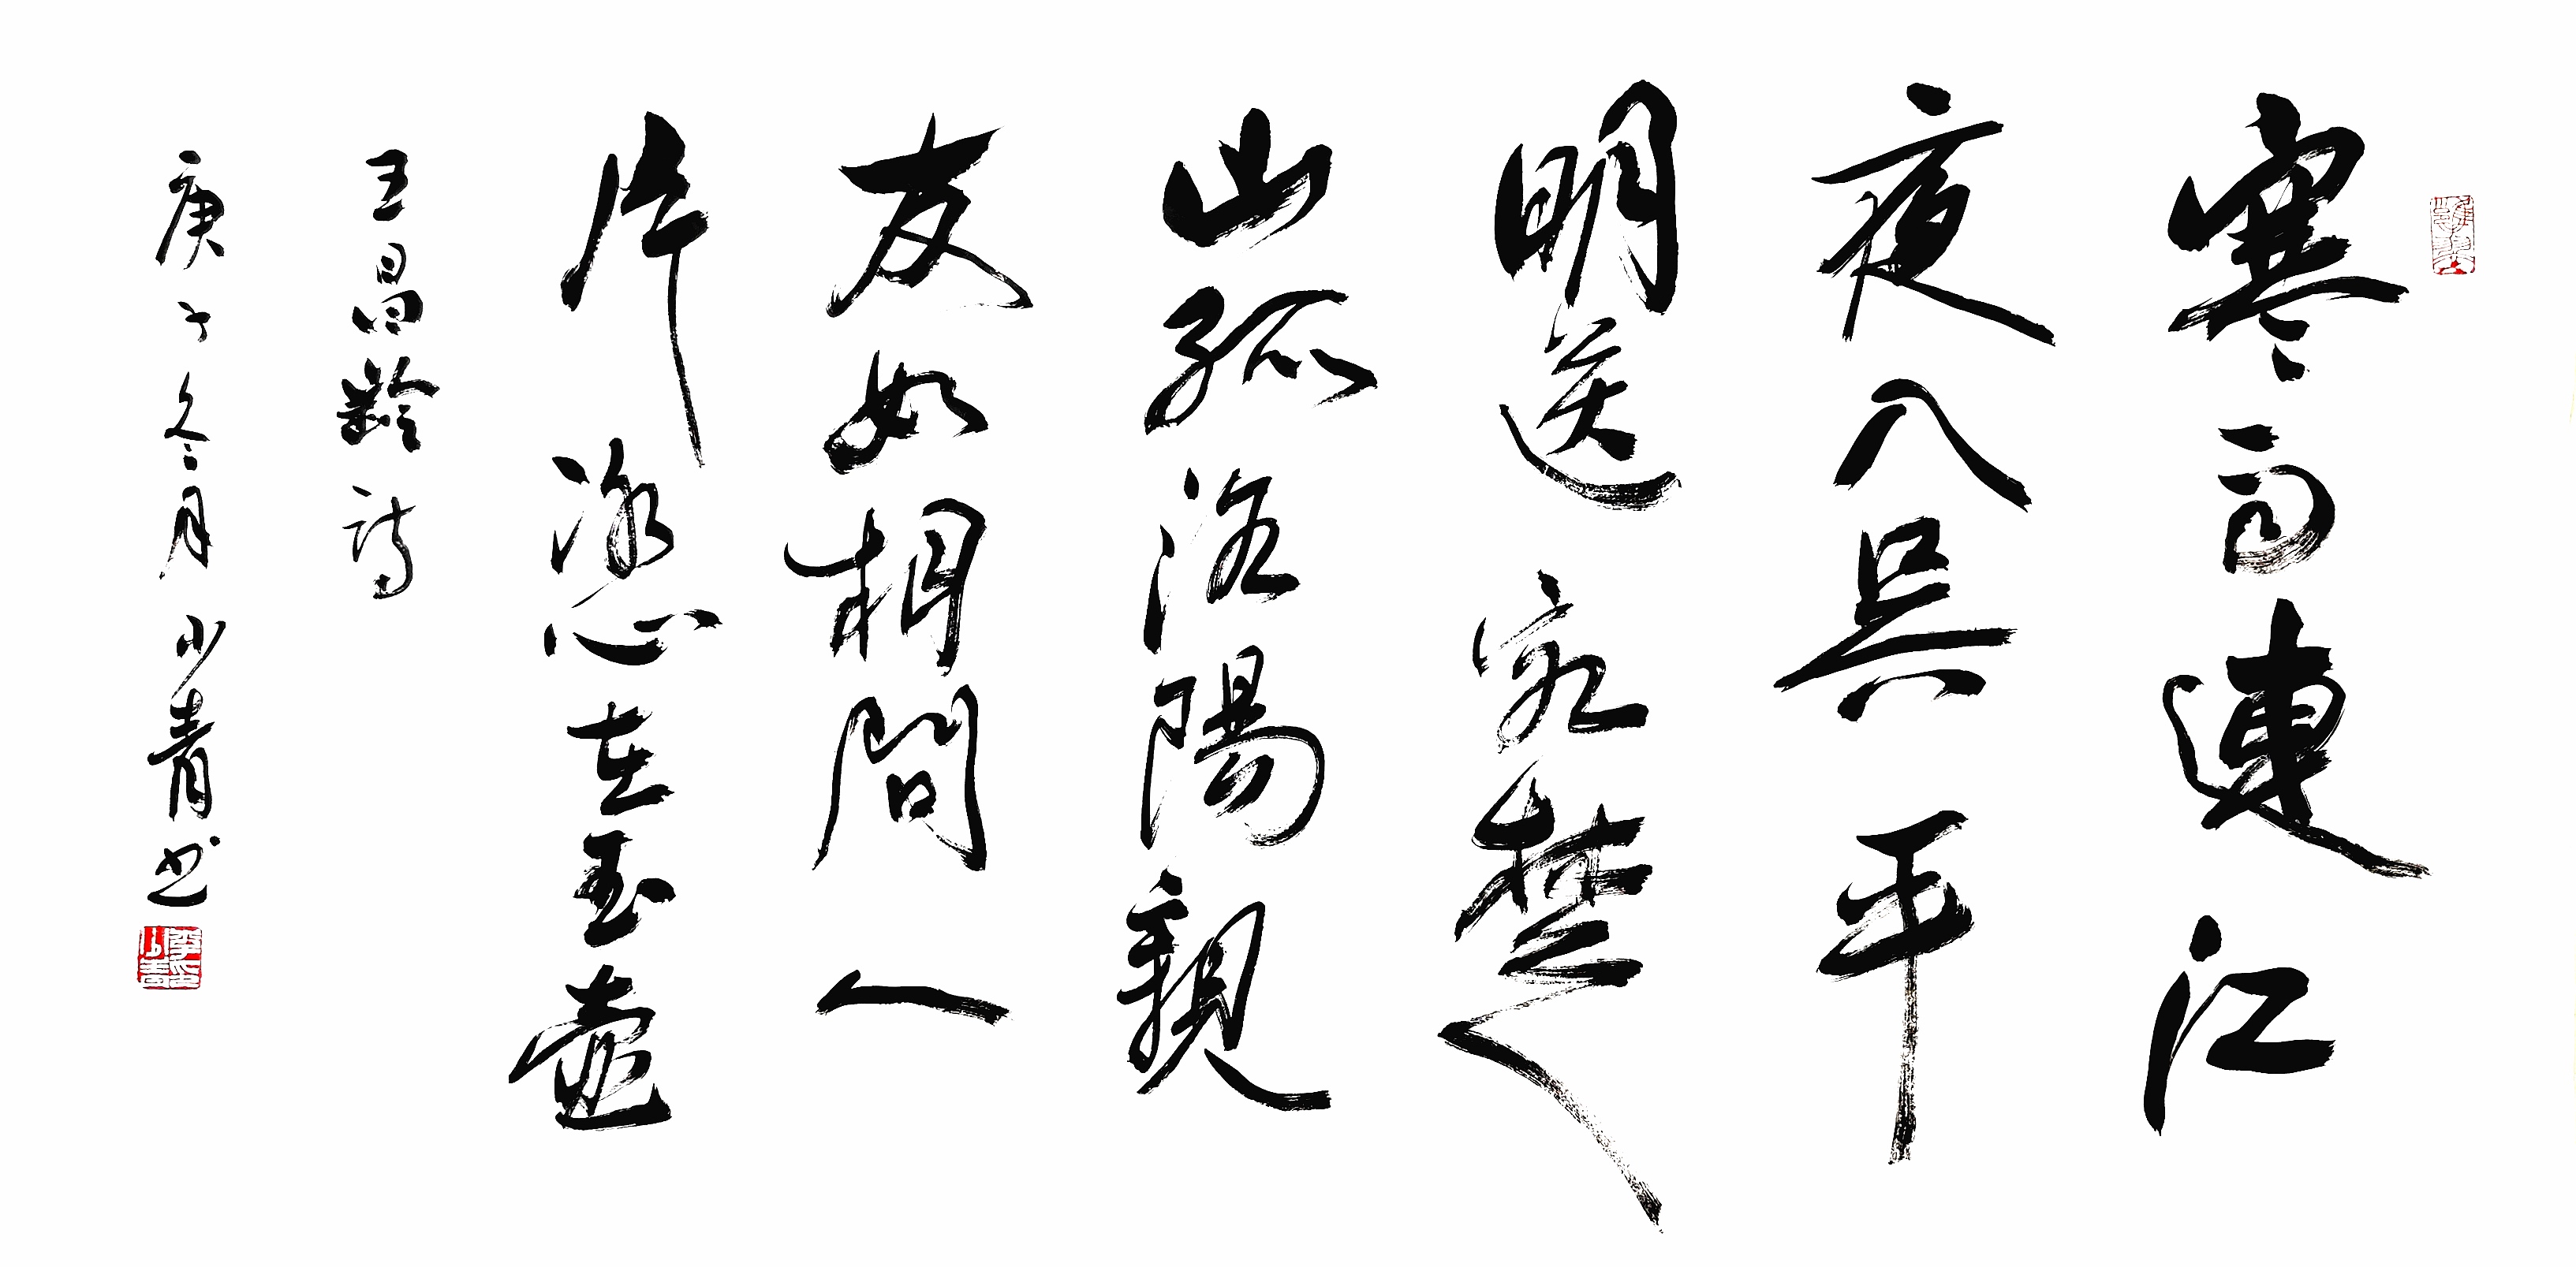 寒雨連江
夜入吳平
明送客楚
山孤洛陽親
友如相問一
片冰心在玉壺
王昌齡詩
庚子冬月少青书